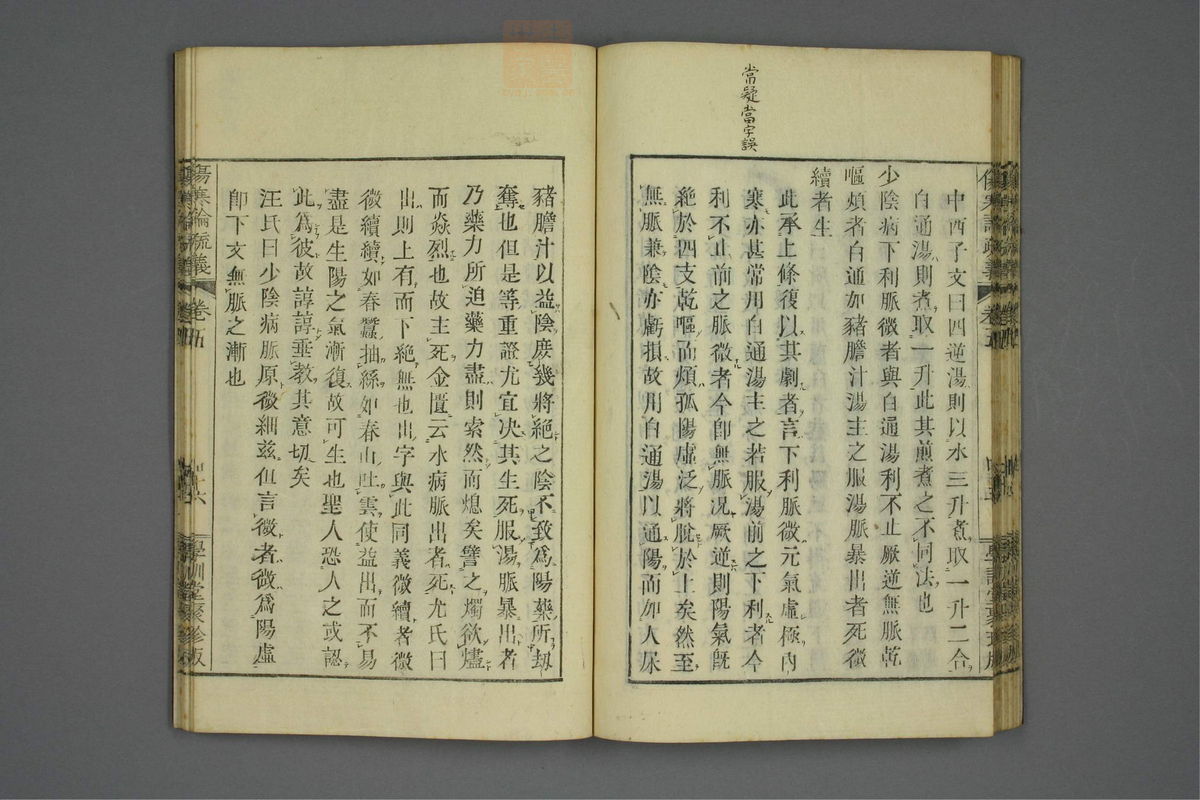 常疑當字誤
中西子文曰四逆湯則以水三升煮取一升二合
白通湯則煮取一升此其煎煮之不同法也
少陰病下利脈微者與白通湯利不止厥逆無脈乾
嘔煩者白通加豬膽汁湯主之服湯脈暴出者死微
續者生
此承上條復以其劇者言下利脈微元氣虛極內
寒亦甚常用白通湯主之若服湯前之下利者今
利不止前之脈微者今卽無脈況厥逆則陽氣旣
絕於四支乾嘔而煩孤陽虛泛將脫於上矣然至
無脈兼陰亦虧損故用白通湯以通陽而加人尿
豬膽汁以益陰庶幾將絕之陰不致為陽藥所劫
奪也但是等重證尤宜决其生死服湯脈暴出者
乃藥力所迫藥力盡則索然而熄矣譬之燭欲燼
而焱烈也故主死金匱云水病脈出者死尤氏曰
出則上有而下絕無也出字與此同義微續者微
微續續如春蠶抽絲如春山吐雲使益出而不易
盡是生陽之氣漸復故可生也聖人恐人之或認
此為彼故諄諄垂教其意切矣
汪氏曰少陰病脈原微細茲但言微者微為陽虛
卽下文無脈之漸也
傷寒論疏義
卷五
學訓堂聚珍版